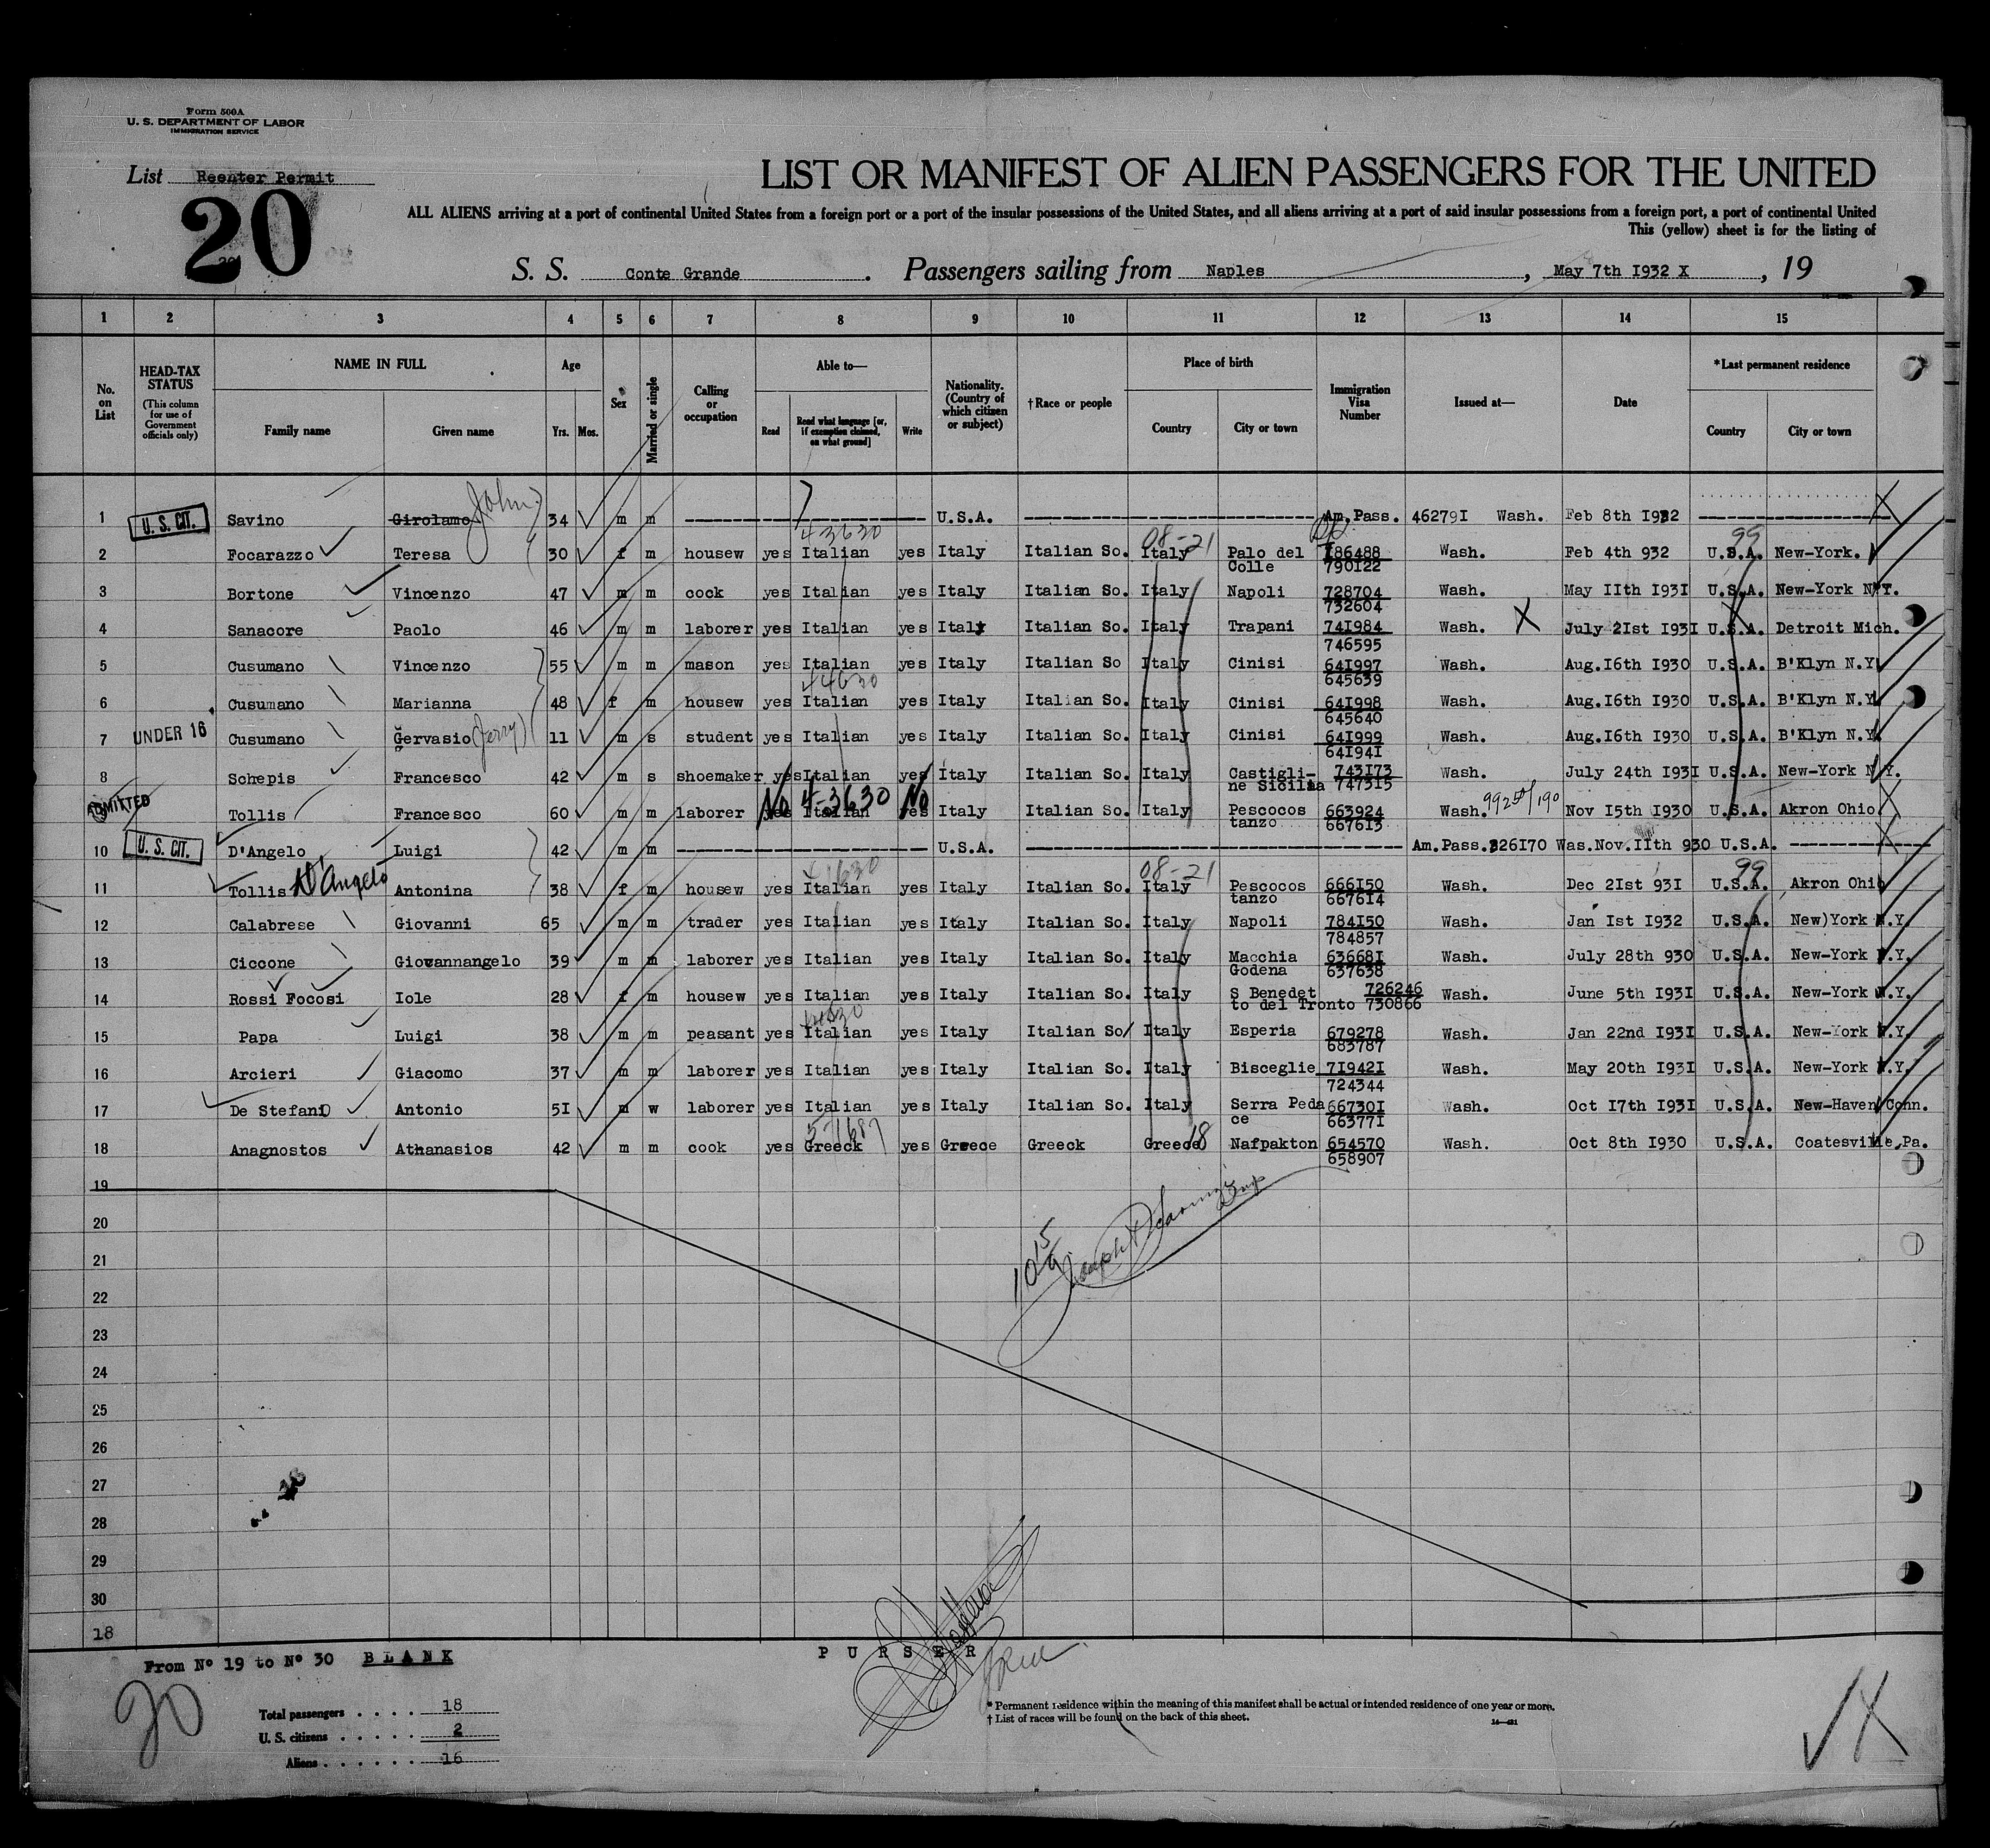 Form 500A
U. S. DEPARTMENT OF LABOR
IMMIGRATION SERVICE
List Reenter Permit
20
LIST OR MANIFEST OF ALIEN PASSENGERS FOR THE UNITED
ALL ALIENS arriving at a port of continental United States from a foreign port or a port of the insular possessions of the United States, and all aliens arriving at a port of said insular possessions from a foreign port, a port of continental United
This (yellow) sheet is for the listing of
S. S. Conte Grande . Passengers sailing from Naples , May 7th I932 X , 19
1 2 3 4 5 6 7 8 9 10 11 12 13 14 15
No. on List HEAD-TAX STATUS (This column for use of Government officials only) NAME IN FULL Family name Given name Age Yrs. Mos. Sex Married or single Calling or occupation Able to— Read Read what language [or, if exemption claimed, on what ground] Write Nationality. (Country of which citizen or subject) †Race or people Place of birth Country City or town Immigration Visa Number Issued at— Date *Last permanent residence Country City or town
1 U. S. CIT. Savino Girolamo John 34 m m U.S.A. Am.Pass. 46279I Wash. Feb 8th I932
4-3630 08-21 99
2 Focarazzo Teresa 30 f m housew yes Italian yes Italy Italian So. Italy Palo del I86488 Wash. Feb 4th 932 U.S.A. New-York.
Colle 790I22
3 Bortone Vincenzo 47 m m cock yes Italian yes Italy Italian So. Italy Napoli 728704 Wash. May IIth I93I U.S.A. New-York N.Y.
732604
4 Sanacore Paolo 46 m m laborer yes Italian yes Italy Italian So. Italy Trapani 74I984 Wash. X July 2Ist I93I U.S.A. Detroit Mich.
746595
5 Cusumano Vincenzo 55 m m mason yes Italian yes Italy Italian So Italy Cinisi 64I997 Wash. Aug.I6th I930 U.S.A. B'Klyn N.Y
645639
6 Cusumano Marianna 48 f m housew yes Italian yes Italy Italian So. Italy Cinisi 64I998 Wash. Aug.I6th I930 U.S.A. B'Klyn N.Y
645640
7 UNDER 16 Cusumano Gervasio (Jerry) 11 m s student yes Italian yes Italy Italian So. Italy Cinisi 64I999 Wash. Aug.I6th I930 U.S.A. B'Klyn N.Y
64I94I
8 Schepis Francesco 42 m s shoemaker yes Italian yes Italy Italian So. Italy Castigli- 743I73 Wash. July 24th I93I U.S.A. New-York N.Y.
ne Sicilia 7473I5
ADMITTED No 4-3630 No
Tollis Francesco 60 m m laborer yes Italian yes Italy Italian So. Italy Pescocos 663924 Wash. Nov I5th I930 U.S.A. Akron Ohio
tanzo 6676I3
10 U. S. CIT. D'Angelo Luigi 42 m m U.S.A. Am.Pass.326I70 Was.Nov.IIth 930 U.S.A.
08-21 99
11 Tollis D'Angelo Antonina 38 f m housew yes Italian yes Italy Italian So. Italy Pescocos 666I50 Wash. Dec 2Ist 93I U.S.A. Akron Ohio
tanzo 6676I4
12 Calabrese Giovanni 65 m m trader yes Italian yes Italy Italian So. Italy Napoli 784I50 Wash. Jan Ist I932 U.S.A. New)York N.Y.
784857
13 Ciccone Giovannangelo 39 m m laborer yes Italian yes Italy Italian So. Italy Macchia 63668I Wash. July 28th 930 U.S.A. New-York N.Y.
Godena 637638
14 Rossi Focosi Iole 28 f m housew yes Italian yes Italy Italian So. Italy S Benedet 726246 Wash. June 5th I93I U.S.A. New-York N.Y.
to del Tronto 730866
15 Papa Luigi 38 m m peasant yes Italian yes Italy Italian So/ Italy Esperia 679278 Wash. Jan 22nd I93I U.S.A. New-York N.Y.
683787
16 Arcieri Giacomo 37 m m laborer yes Italian yes Italy Italian So. Italy Bisceglie 7I942I Wash. May 20th I93I U.S.A. New-York N.Y.
724344
17 De Stefano Antonio 5I m w laborer yes Italian yes Italy Italian So. Italy Serra Peda 66730I Wash. Oct I7th I93I U.S.A. New-Haven Conn.
ce 66377I
18 Anagnostos Athanasios 42 m m cook yes Greeck yes Greece Greeck Greece 18 Nafpakton 654570 Wash. Oct 8th I930 U.S.A. Coatesville,Pa.
658907
19
20
21
22
23
24
25
26
27
28
29
30
18
P U R S E R
From Nº 19 to Nº 30 B L A N K
20
Total passengers . . . . 18
U. S. citizens . . . . . 2
Aliens . . . . . . 16
* Permanent residence within the meaning of this manifest shall be actual or intended residence of one year or more.
† List of races will be found on the back of this sheet.